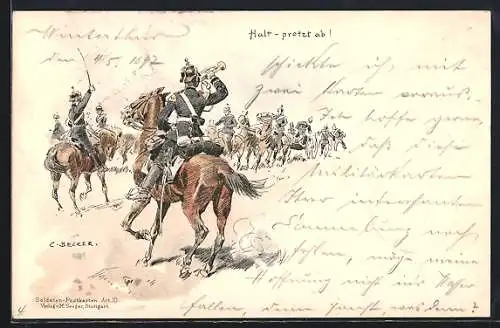 Halt - protzt ab!
Winterthur
den 4/5. 1897
schickte ich, mit
zwei Karten voraus.
Ich hoffe gern,
daß diese
Militärkarten
Ihrer interessanten
Sammlung noch
fehlen, möge meine
Hoffnung nicht ins Wasser
fallen, denn
C. BECKER.
Soldaten-Postkarten Art. 10
Verlag v. H. Seeger, Stuttgart.